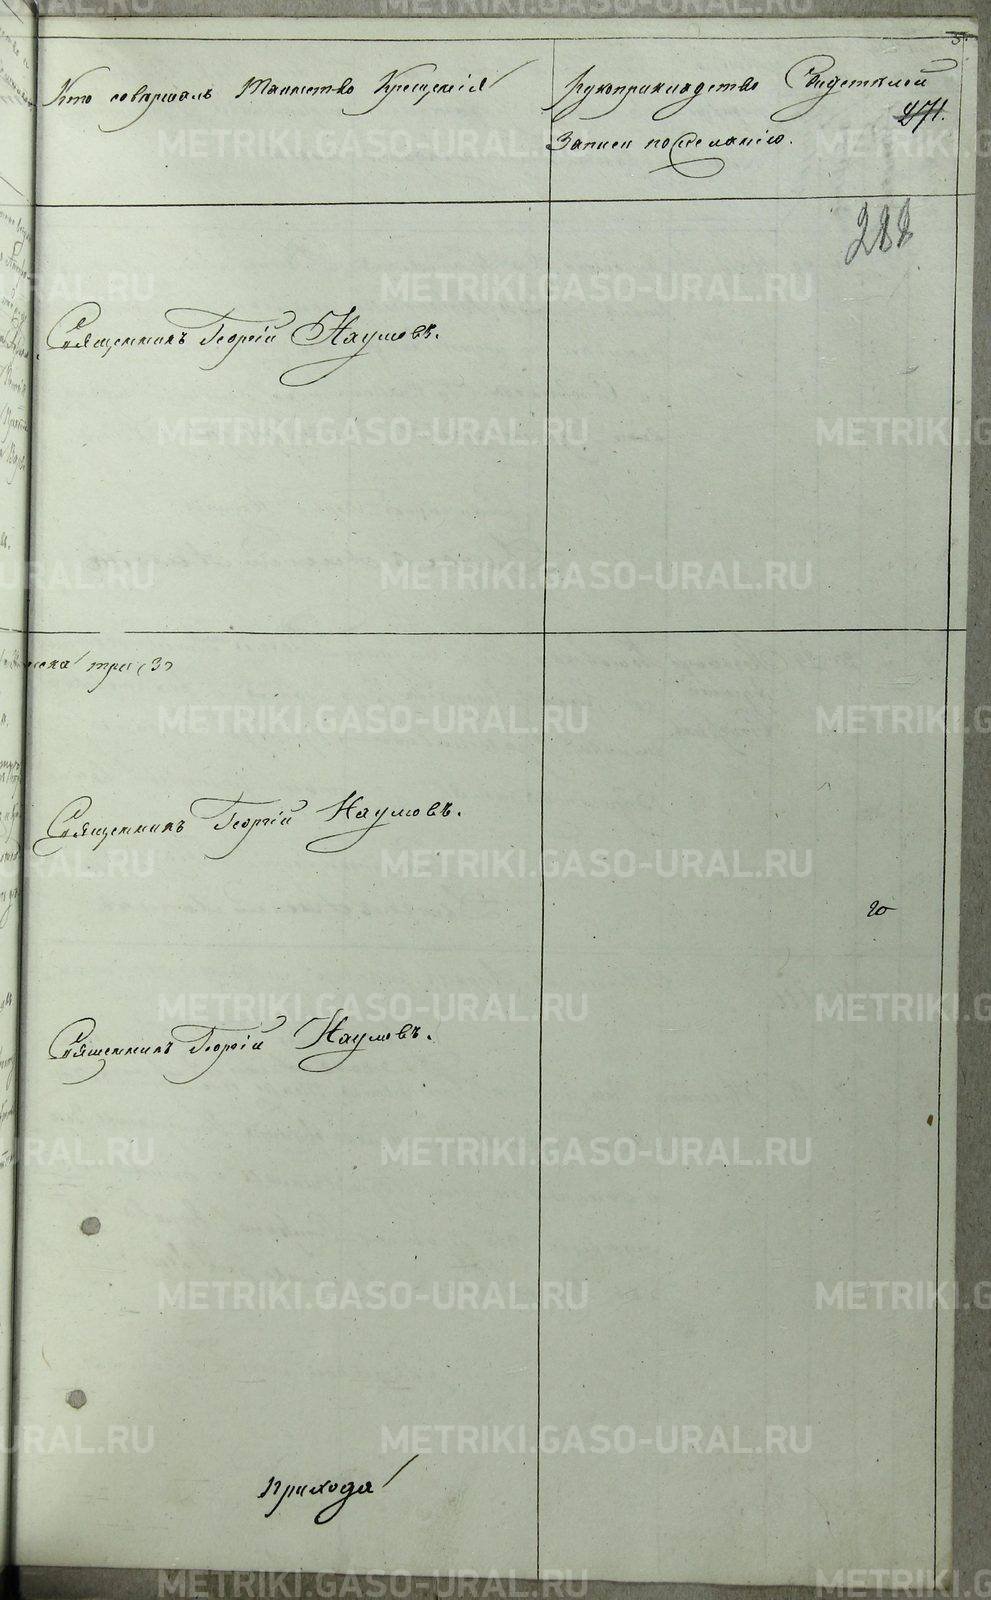 Кто совершалъ Таинство Крещенія
Рукоприкладство Свидетелей
Записи по желанію.
271.
288
Священникъ Георгій Наумовъ.
три (3)
Священникъ Георгій Наумовъ.
20
Священникъ Георгій Наумовъ.
Прихода
METRIKI.GASO-URAL.RU